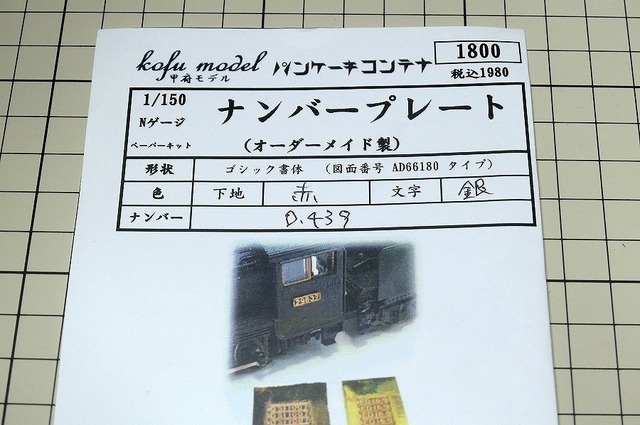 kofu model パンケーキコンテナ 1800
甲府モデル 税込1980
1/150 ナンバープレート
Nゲージ
ペーパーキット (オーダーメイド製)
形状 ゴシック書体 (図面番号 AD66180 タイプ)
色 下地 赤 文字 銀
ナンバー D.439